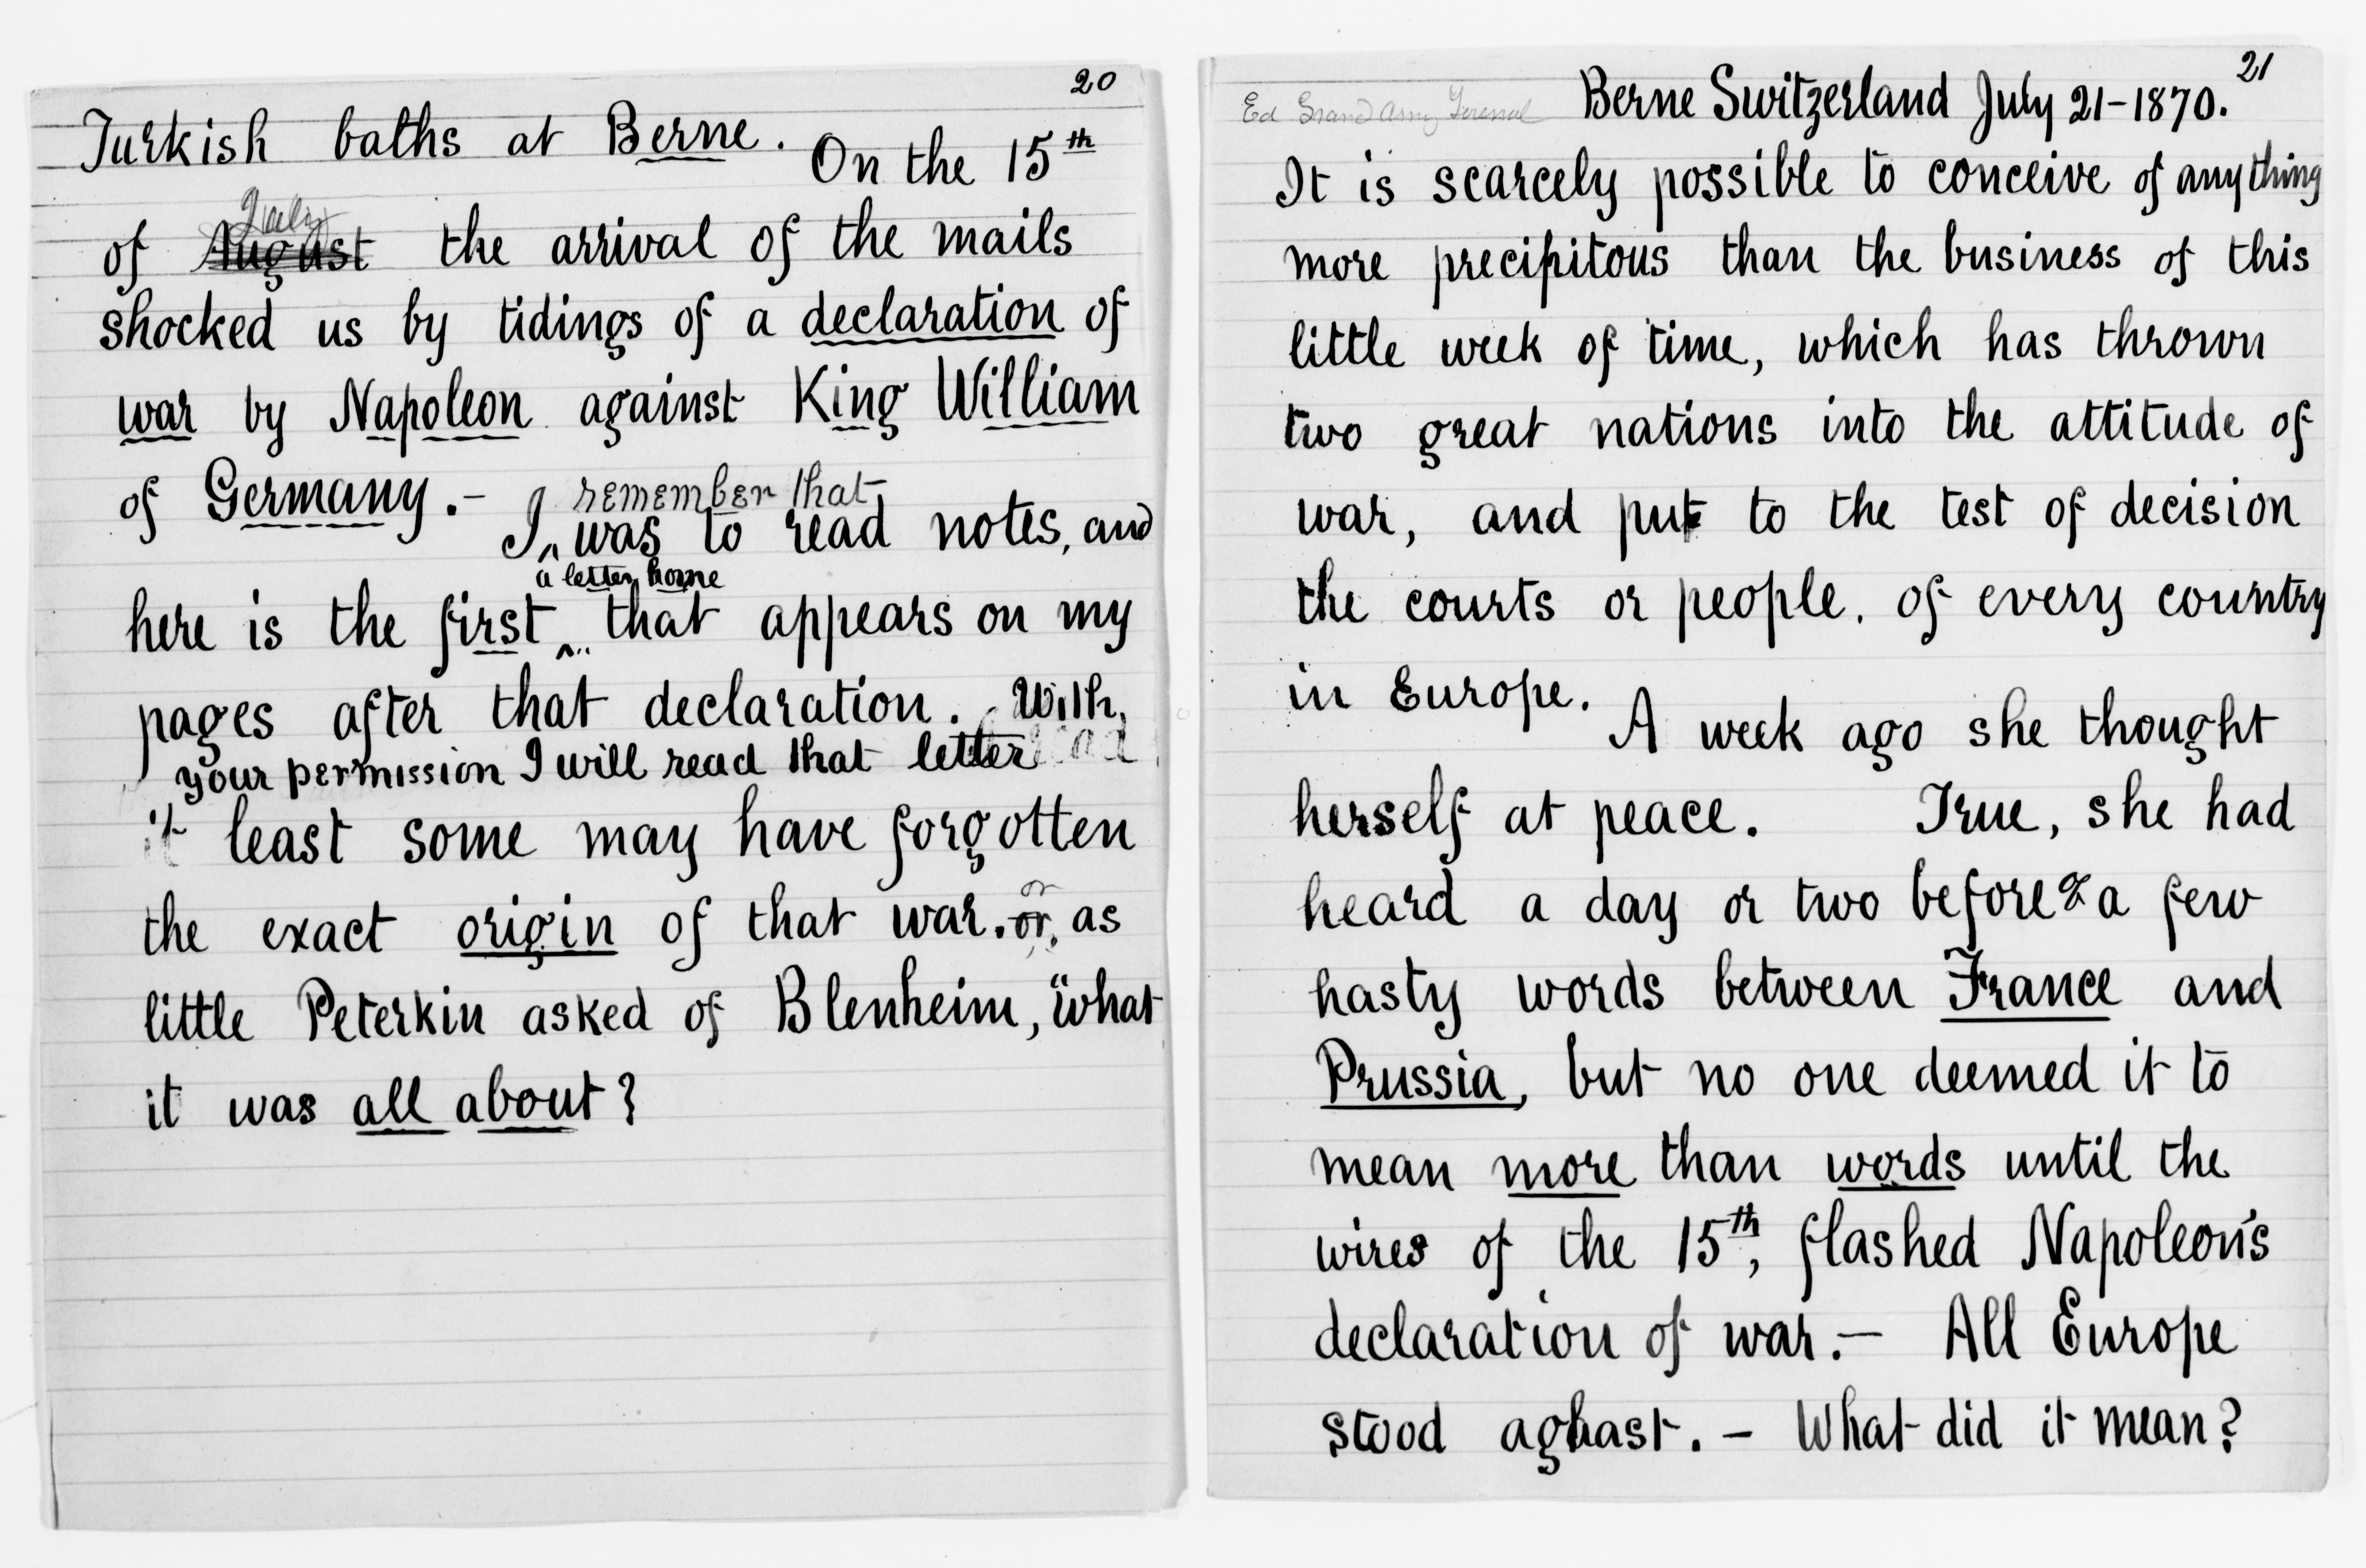 20
Turkish baths at Berne. On the 15th
July
of August the arrival of the mails
shocked us by tidings of a declaration of
war by Napoleon against King William
of Germany.-
remember that
I ^ was to read notes, and
a letter home
here is the first ^ that appears on my
pages after that declaration. With
your permission I will read that letter
it least some may have forgotten
or
the exact origin of that war. or, as
little Peterkin asked of Blenheim, "what
it was all about?
21
Ed Grand Army Journal Berne Switzerland July 21-1870.
It is scarcely possible to conceive of anything
more precipitous than the business of this
little week of time, which has thrown
two great nations into the attitude of
war, and put to the test of decision
the courts or people, of every country
in Europe. A week ago she thought
herself at peace. True, she had
heard a day or two before & a few
hasty words between France and
Prussia, but no one deemed it to
mean more than words until the
wires of the 15th, flashed Napoleon's
declaration of war.— All Europe
stood aghast. — What did it mean?